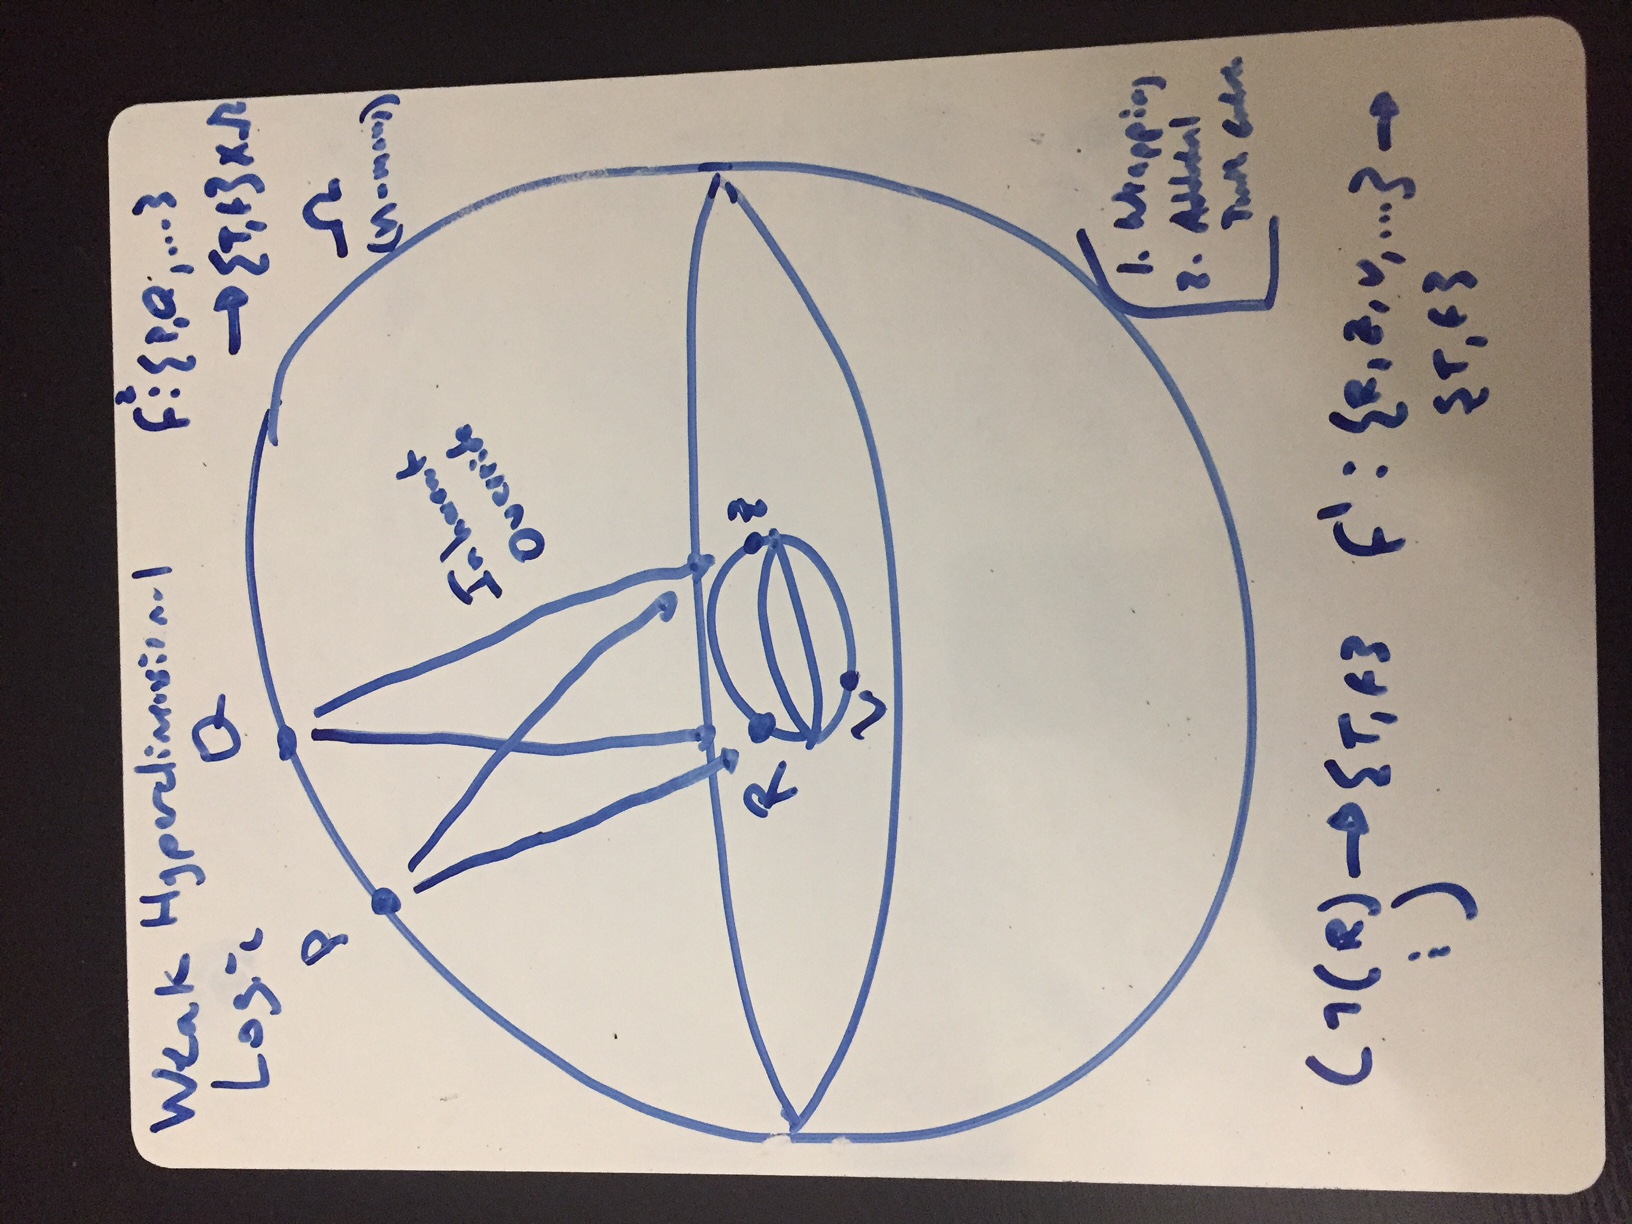 Weak Hyperdimensional
Logic
f²:{P,Q,...}
→{T,F}×Ω
Ω
Q
P
Inherent
Override
R
Z
V
1. Wrapping
2.
Truth
(¬(R)→{T,F}
i)
F¹:{R,Z,V,...}→
{T,F}